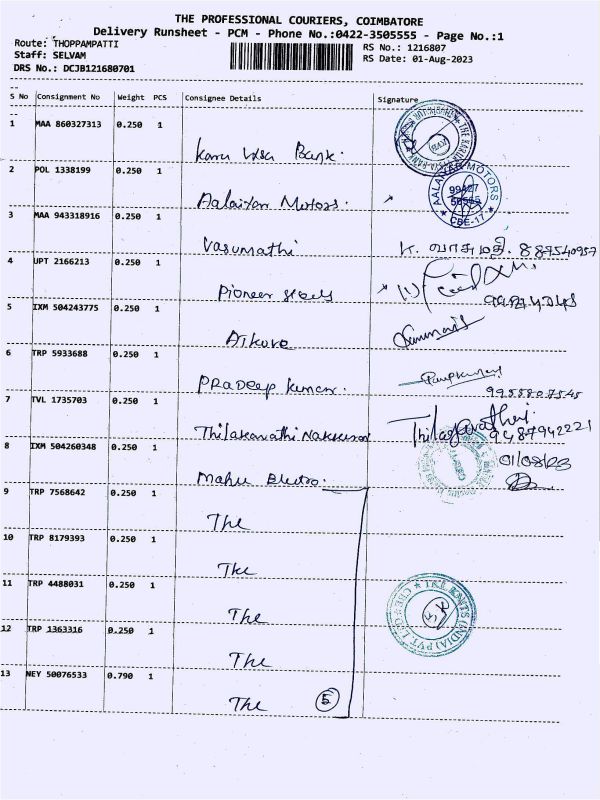 THE PROFESSIONAL COURIERS, COIMBATORE
Delivery Runsheet - PCM - Phone No.:0422-3505555 - Page No.:1
Route: THOPPAMPATTI RS No.: 1216807
Staff: SELVAM RS Date: 01-Aug-2023
DRS No.: DCJB121680701
S No Consignment No Weight PCS Consignee Details Signature
1 MAA 860327313 0.250 1
Bank.
2 POL 1338199 0.250 1
Motors. AALAYAM MOTORS
CBE-17
3 MAA 943318916 0.250 1
Vasumathi K. வாசுமதி.
4 UPT 2166213 0.250 1
Pioneer steels
5 IXM 504243775 0.250 1
6 TRP 5933688 0.250 1
Pradeep kumar.
7 TVL 1735703 0.250 1
Thilakavathi Thilagavathi
9487942221
8 IXM 504260348 0.250 1 01/08/23
9 TRP 7568642 0.250 1
The
10 TRP 8179393 0.250 1
The
11 TRP 4488031 0.250 1
The
12 TRP 1363316 0.250 1
The
13 NEY 50076533 0.790 1
The 5